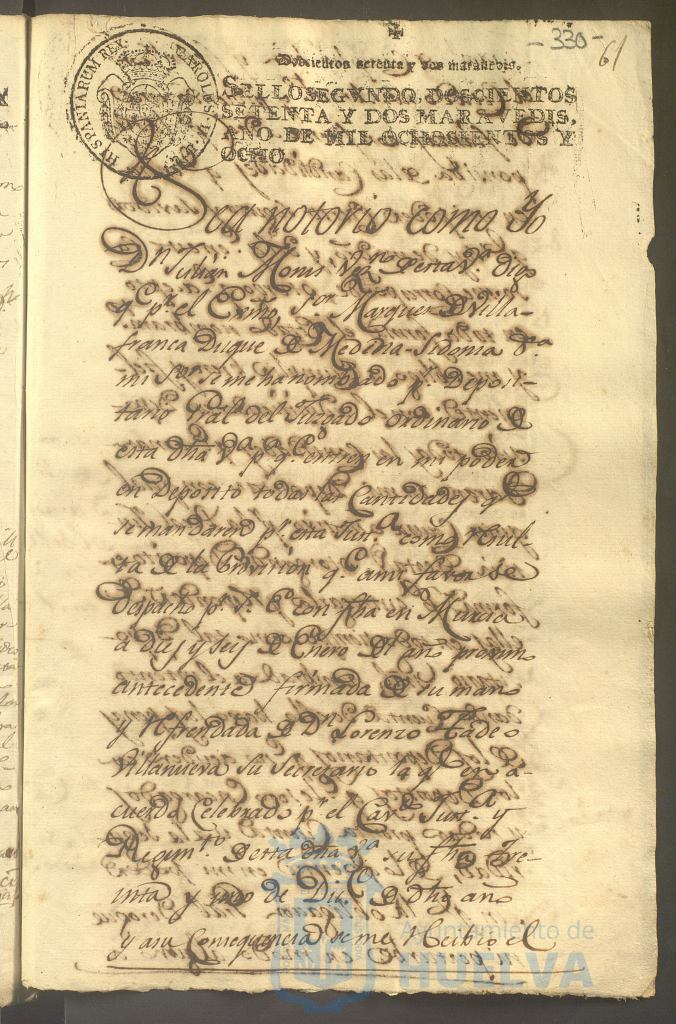 - 330 -
61
Doscientos setenta y dos maravedis.
HISPANIARUM REX. CAROLUS IV
SELLO SEGVNDO, DOSCIENTOS
SETENTA Y DOS MARAVEDIS,
AÑO DE MIL OCHOCIENTOS Y
OCHO.
Sea notorio como Yo
Dn Julian Monis Vezno de esta Va digo
qe pr el Exmo Sor Marques D Villa-
franca Duque De Medina-Sidonia &a
mi Sor se me ha nombrado pr Deposi-
tario Gral del Juzgado ordinario De
esta dha Va pa qe entren en mi poder
en Deposito todas las Cantidades qe
se mandaren pr esta Justa como resul-
ta De la Provision qe a mi favor se
Despacho pr S. Ea con fha en Murcia
a diez y seis de Enero Del año proximo
antecedente firmada De su mano
y refrendada De Dn Lorenzo Tadeo
Villanueva Su Secretario la qe en a-
cuerdo Celebrado pr el Cavdo Justa y
Regimto De esta dha Va su fha tre-
inta y uno de Dice De dho año
y a su Consequencia se me recibio el
Ayuntamiento de
HUELVA